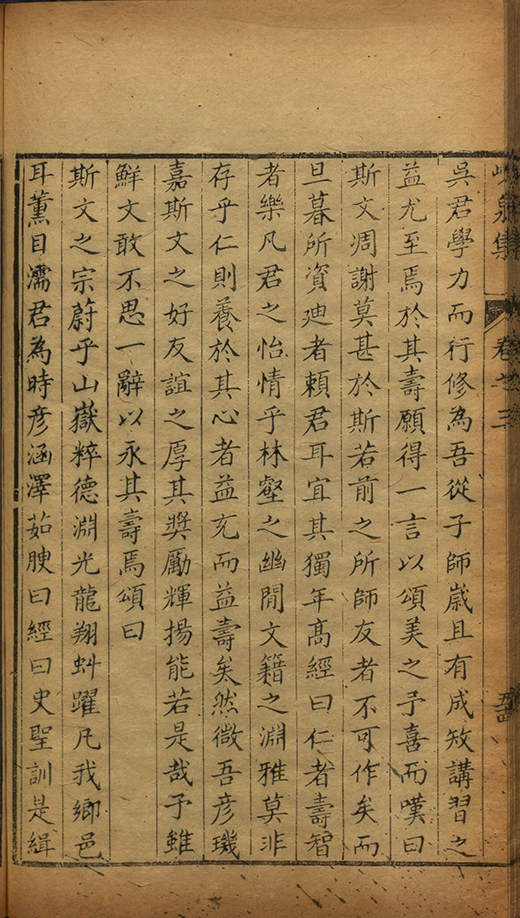 峴泉集 卷之三
吳君學力而行修為吾從子師歲且有成效講習之
益尤至焉於其壽願得一言以頌美之予喜而嘆曰
斯文凋謝莫甚於斯若前之所師友者不可作矣而
旦暮所資廸者賴君耳宜其獨年髙經曰仁者壽智
者樂凡君之怡情乎林壑之幽閒文籍之淵雅莫非
存乎仁則養於其心者益充而益壽矣然微吾彥璣
嘉斯文之好友誼之厚其奬勵輝揚能若是哉予雖
鮮文敢不思一辭以永其壽焉頌曰
斯文之宗蔚乎山嶽粹德淵光龍翔虯躍凡我鄉邑
耳薰目濡君為時彥涵澤茹腴曰經曰史聖訓是緝